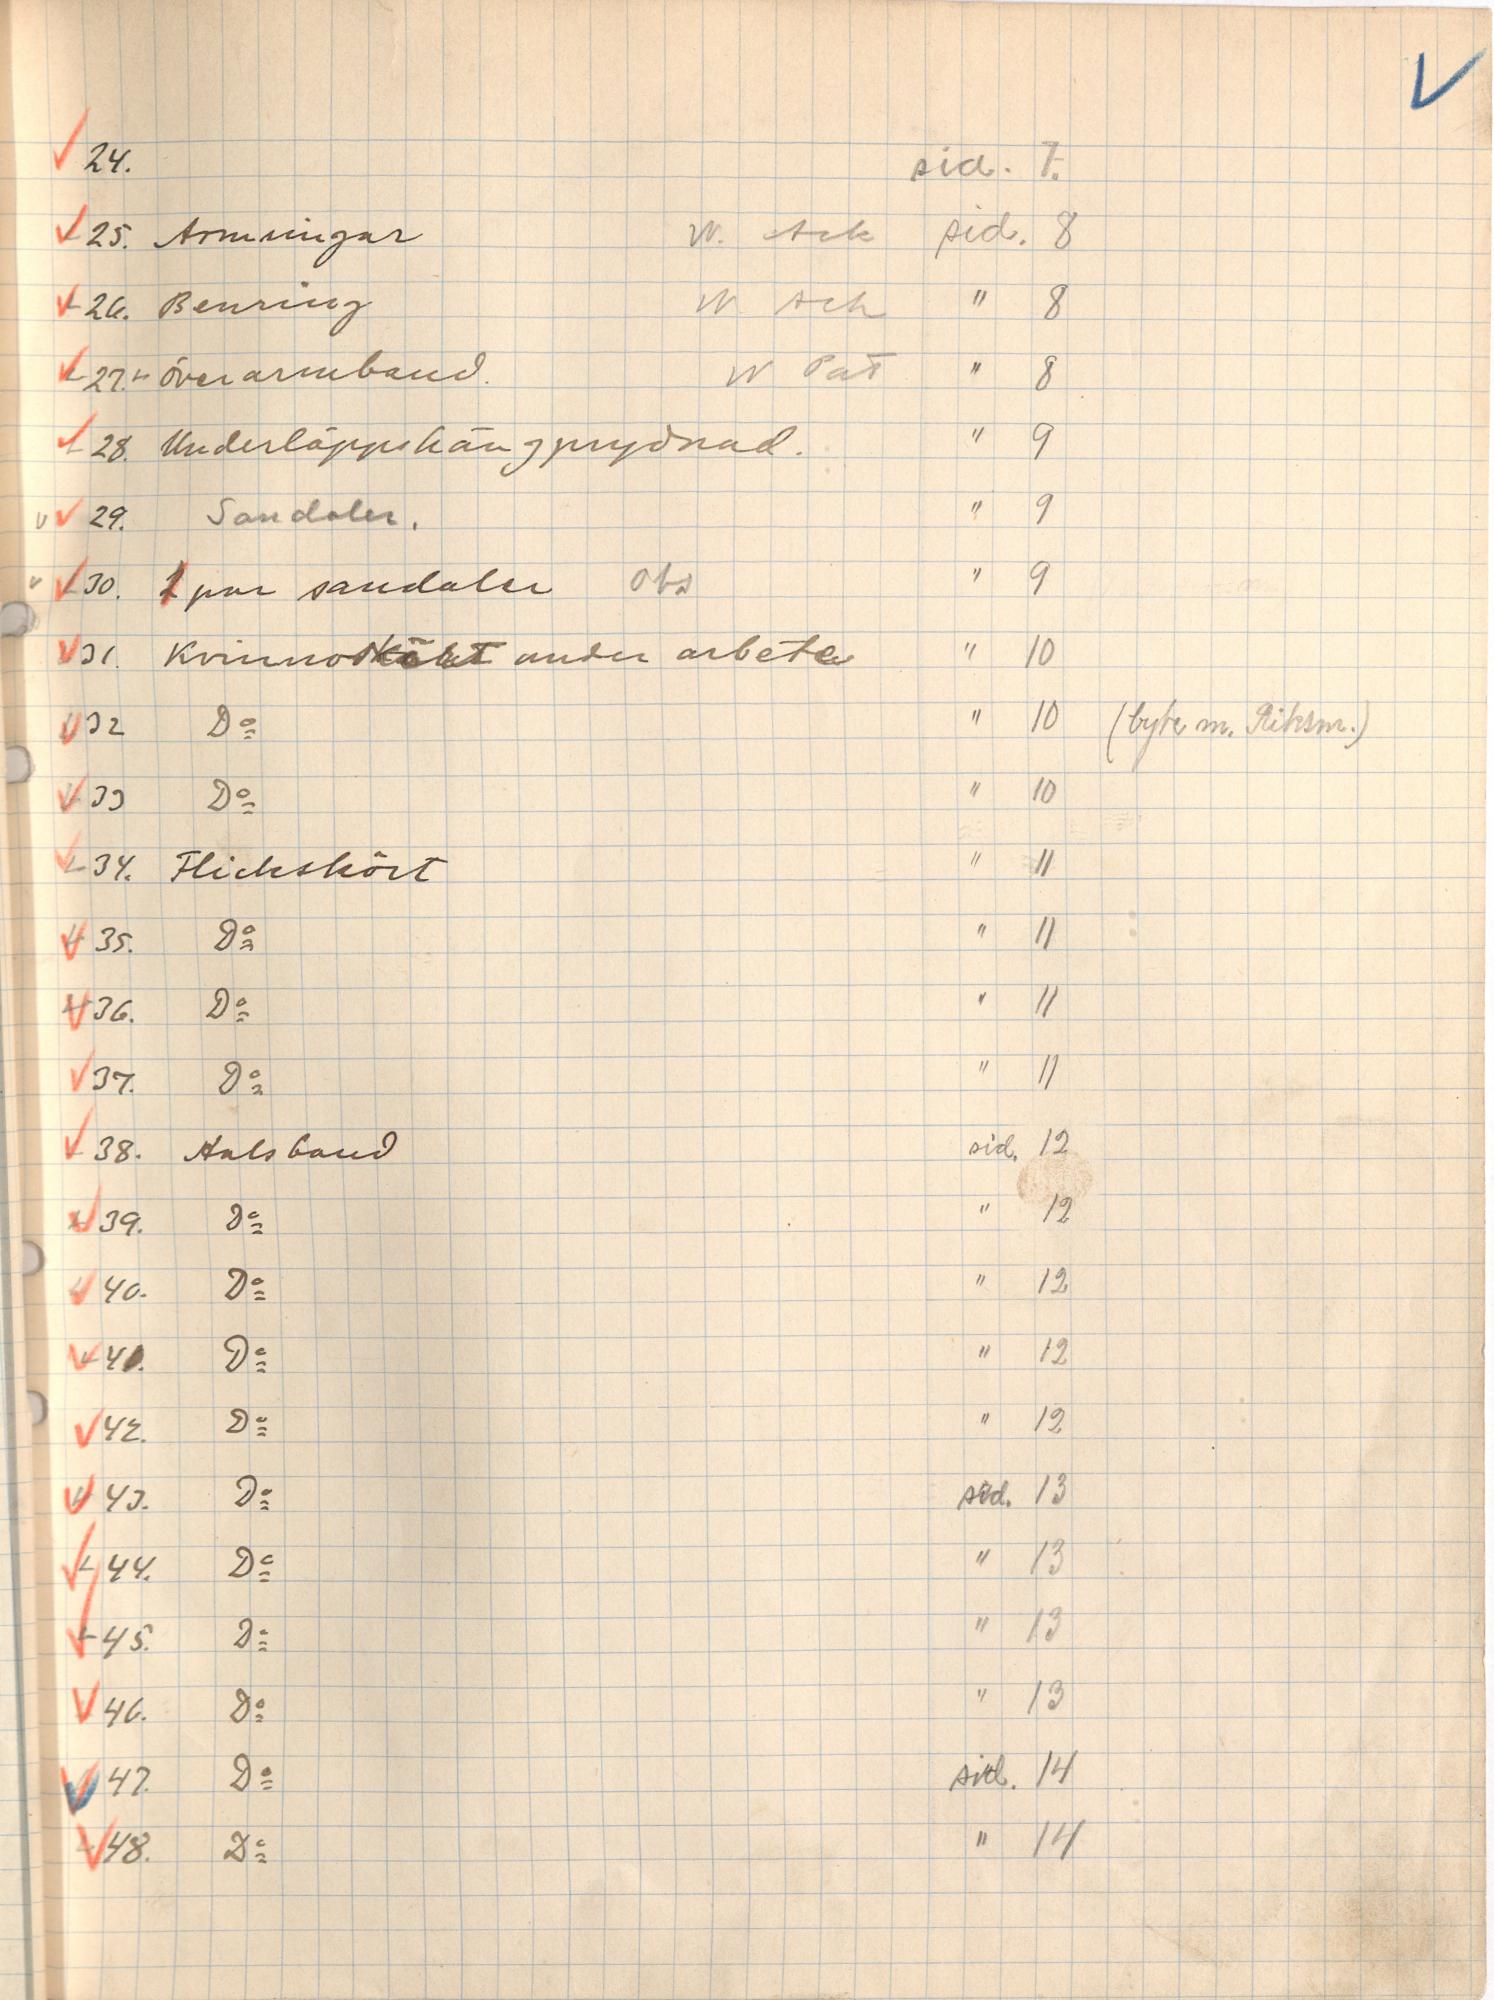 24. sid. 7.
25. Armringar W. Ack sid. 8
26. Benring W Ack " 8
27. Överarmband. W Pat " 8
28. Underläppshängprydnad. " 9
29. Sandaler. " 9
30. 1 par sandaler Obs " 9
31. Kvinnoskört under arbete " 10
32 Do " 10 (byte m. Riksm.)
33 Do " 10
34. Flickskört " 11
35. Do " 11
36. Do " 11
37. Do " 11
38. Halsband sid. 12
39. Do " 12
40. Do " 12
41. Do " 12
42. Do " 12
43. Do sid. 13
44. Do " 13
45. Do " 13
46. Do " 13
47. Do sid. 14
48. Do " 14